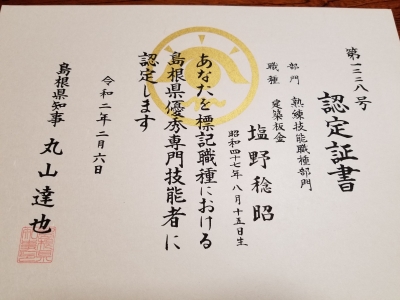 第一二二八号
認定証書
部門　熟練技能職種部門
職種　建築板金
塩野稔昭
昭和四十七年八月十五日生
あなたを標記職種における
島根県優秀専門技能者に
認定します
令和二年二月六日
島根県知事　丸山達也